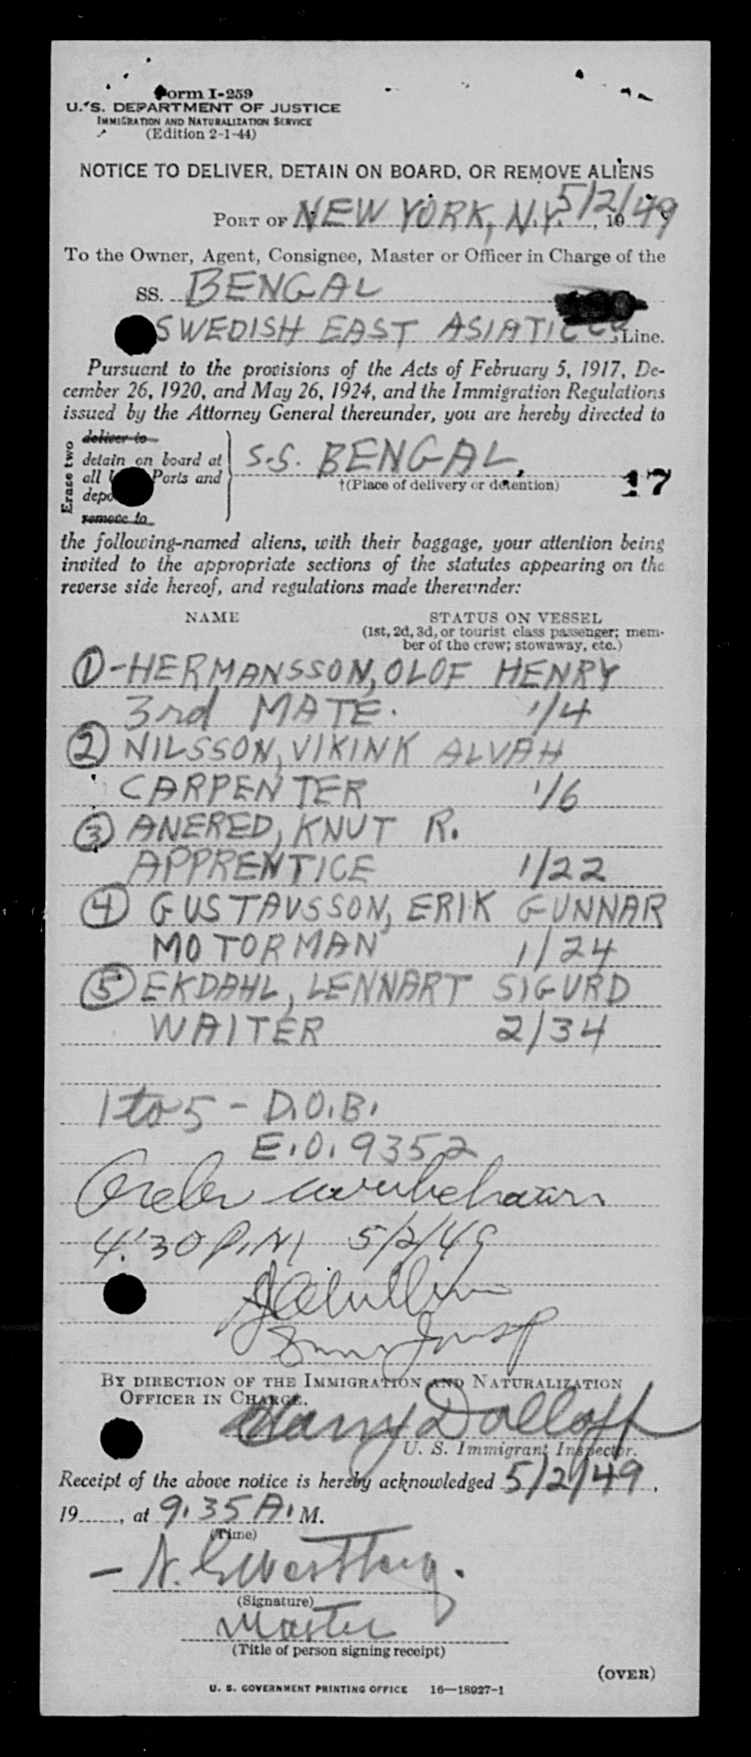 Form I-259
U. S. DEPARTMENT OF JUSTICE
IMMIGRATION AND NATURALIZATION SERVICE
(Edition 2-1-44)
NOTICE TO DELIVER, DETAIN ON BOARD, OR REMOVE ALIENS
PORT OF NEW YORK, N.Y. 5/2/49, 19
To the Owner, Agent, Consignee, Master or Officer in Charge of the
SS. BENGAL
SWEDISH EAST ASIATIC CO, Line.
Pursuant to the provisions of the Acts of February 5, 1917, De-
cember 26, 1920, and May 26, 1924, and the Immigration Regulations
issued by the Attorney General thereunder, you are hereby directed to
Erase two
deliver to
detain on board at
all Ports and
remove to
S.S. BENGAL,
†(Place of delivery or detention)
17
the following-named aliens, with their baggage, your attention being
invited to the appropriate sections of the statutes appearing on the
reverse side hereof, and regulations made thereunder:
NAME STATUS ON VESSEL
(1st, 2d, 3d, or tourist class passenger; mem-
ber of the crew; stowaway, etc.)
1-HERMANSSON, OLOF HENRY
3rd MATE. 1/4
2 NILSSON, VIKINK ALVAH
CARPENTER 1/6
3 ANERED, KNUT R.
APPRENTICE 1/22
4 GUSTAVSSON, ERIK GUNNAR
MOTORMAN 1/24
5 EKDAHL, LENNART SIGURD
WAITER 2/34
1 to 5 - D.O.B.
E.O. 9352
Order
4:30 P.M 5/2/49
BY DIRECTION OF THE IMMIGRATION AND NATURALIZATION
OFFICER IN CHARGE.
Harry Dolloff
U. S. Immigrant Inspector.
Receipt of the above notice is hereby acknowledged 5/2/49,
19, at 9.35 A. M.
(Time)
(Signature)
Master
(Title of person signing receipt)
(OVER)
U. S. GOVERNMENT PRINTING OFFICE 16—18927-1